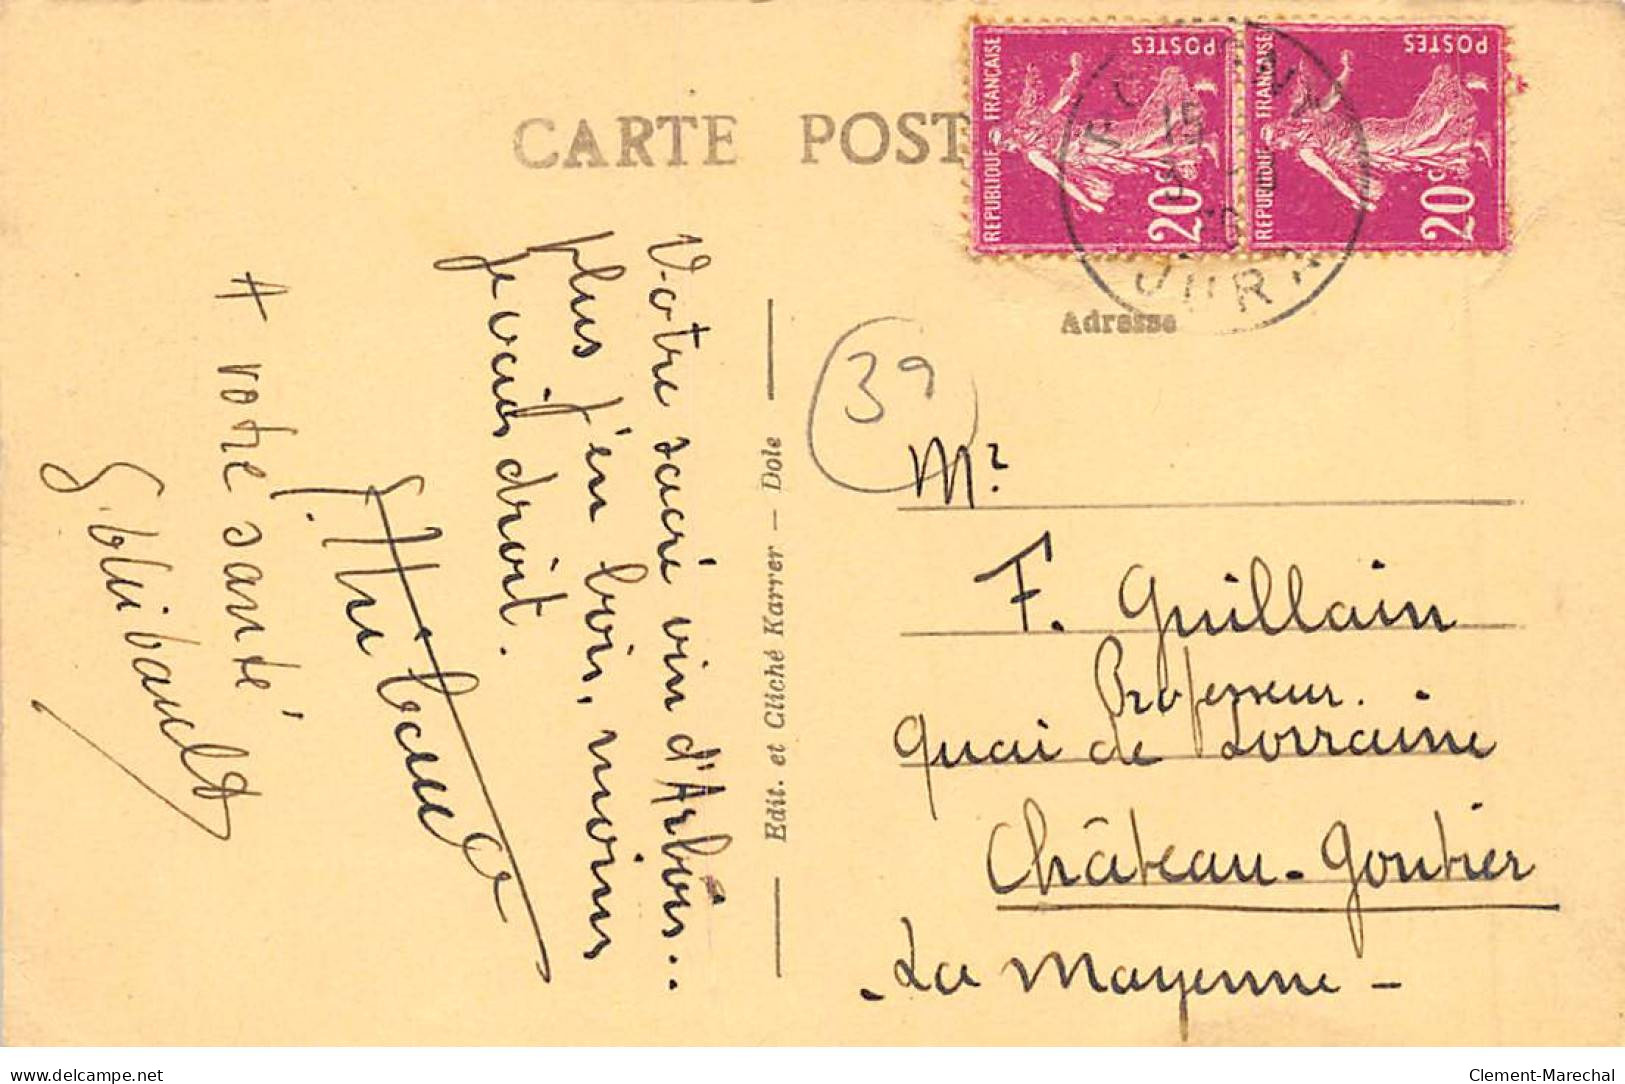 CARTE POST
REPUBLIQUE FRANÇAISE
POSTES
20c
REPUBLIQUE FRANÇAISE
POSTES
20c
15
JURA
Adresse
39
Votre sacré vin d'Arbois..
plus j'en bois, moins
je vais droit.
A votre santé
Edit. et Cliché Karrer — Dole
Mr
F. Guillain
Professeur.
Quai de Lorraine
Château-Gontier
La Mayenne -
delcampe.net
Clement-Marechal